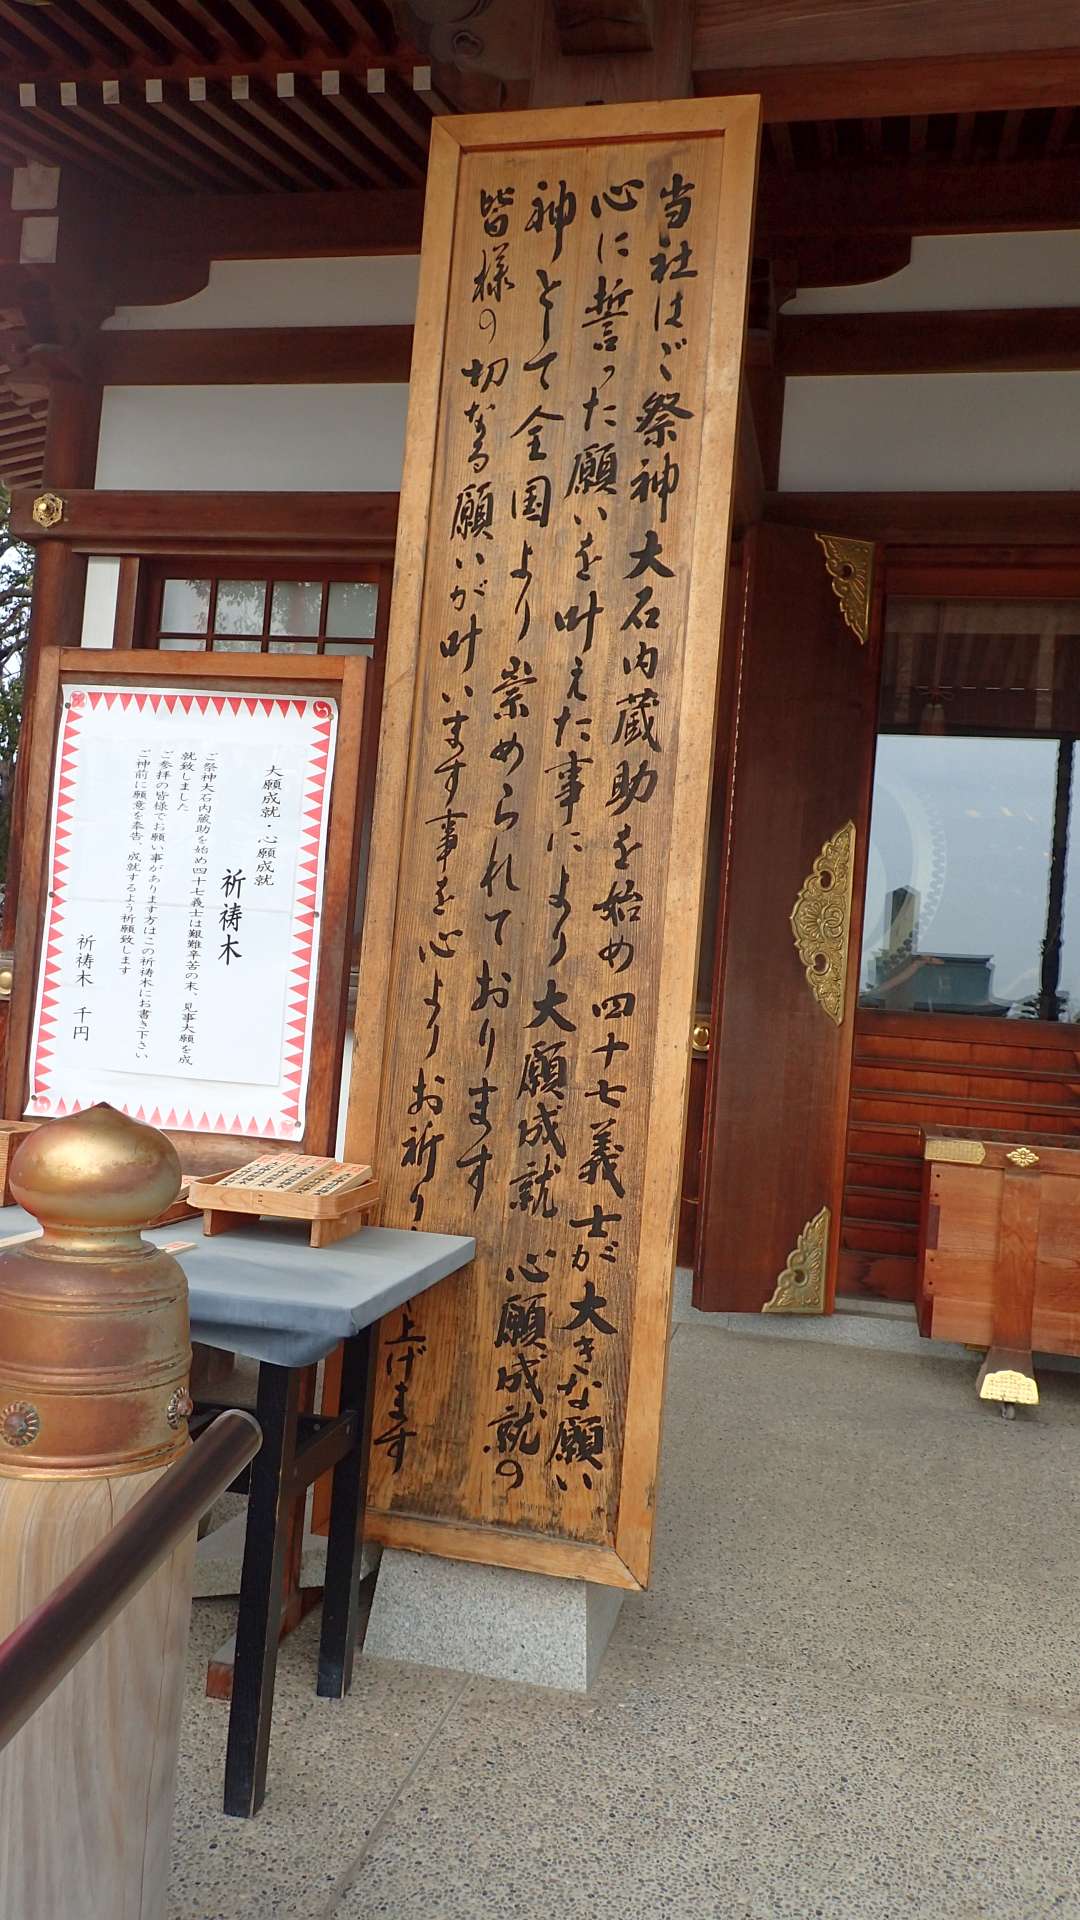 当社はご祭神大石内蔵助を始め四十七義士が大きな願い
心に誓った願いを叶えた事により大願成就 心願成就の
神として全国より崇められております
皆様の切なる願いが叶います事を心よりお祈り
上げます
大願成就・心願成就
祈祷木
ご祭神大石内蔵助を始め四十七義士は艱難辛苦の末、見事大願を成
就致しました
ご参拝の皆様でお願い事があります方はこの祈祷木にお書き下さい
ご神前に願意を奉告、成就するよう祈願致します
祈祷木 千円